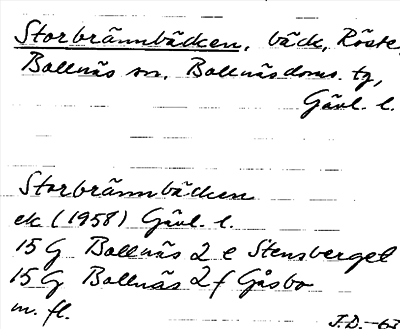 Storbrännbäcken, bäck, Röste,
Bollnäs sn, Bollnäs doms. tg,
Gävl. l.
Storbrännbäcken
ek (1958) Gävl. l.
15 G Bollnäs 2 e Stensberget
15 G Bollnäs 2 f Gåsbo
m. fl.
J.D.-63